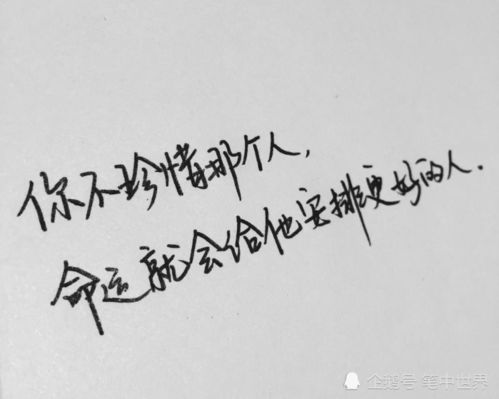 你不珍惜那个人，
命运就会给他安排更好的人.
企鹅号 笔中世界